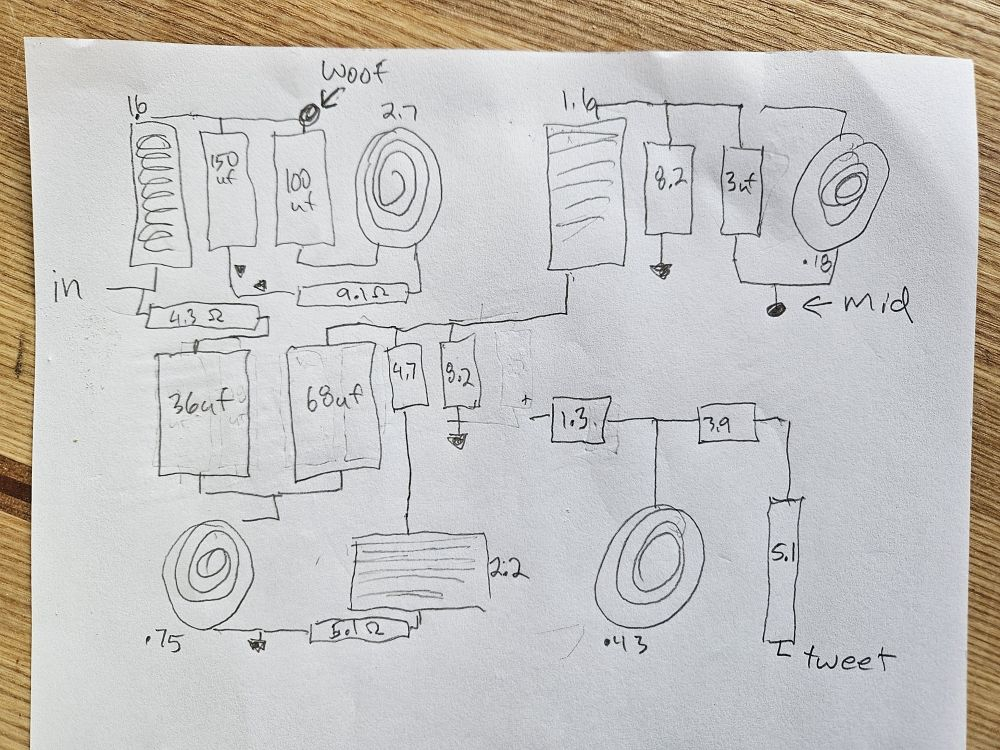 Woof
16
2.7
150
uf
100
uf
1.6
8.2
3uf
.18
in
9.1Ω
4.3 Ω
← Mid
36uf
68uf
4.7
8.2
1.3
3.9
5.1
2.2
5.1Ω
.75
.43
tweet